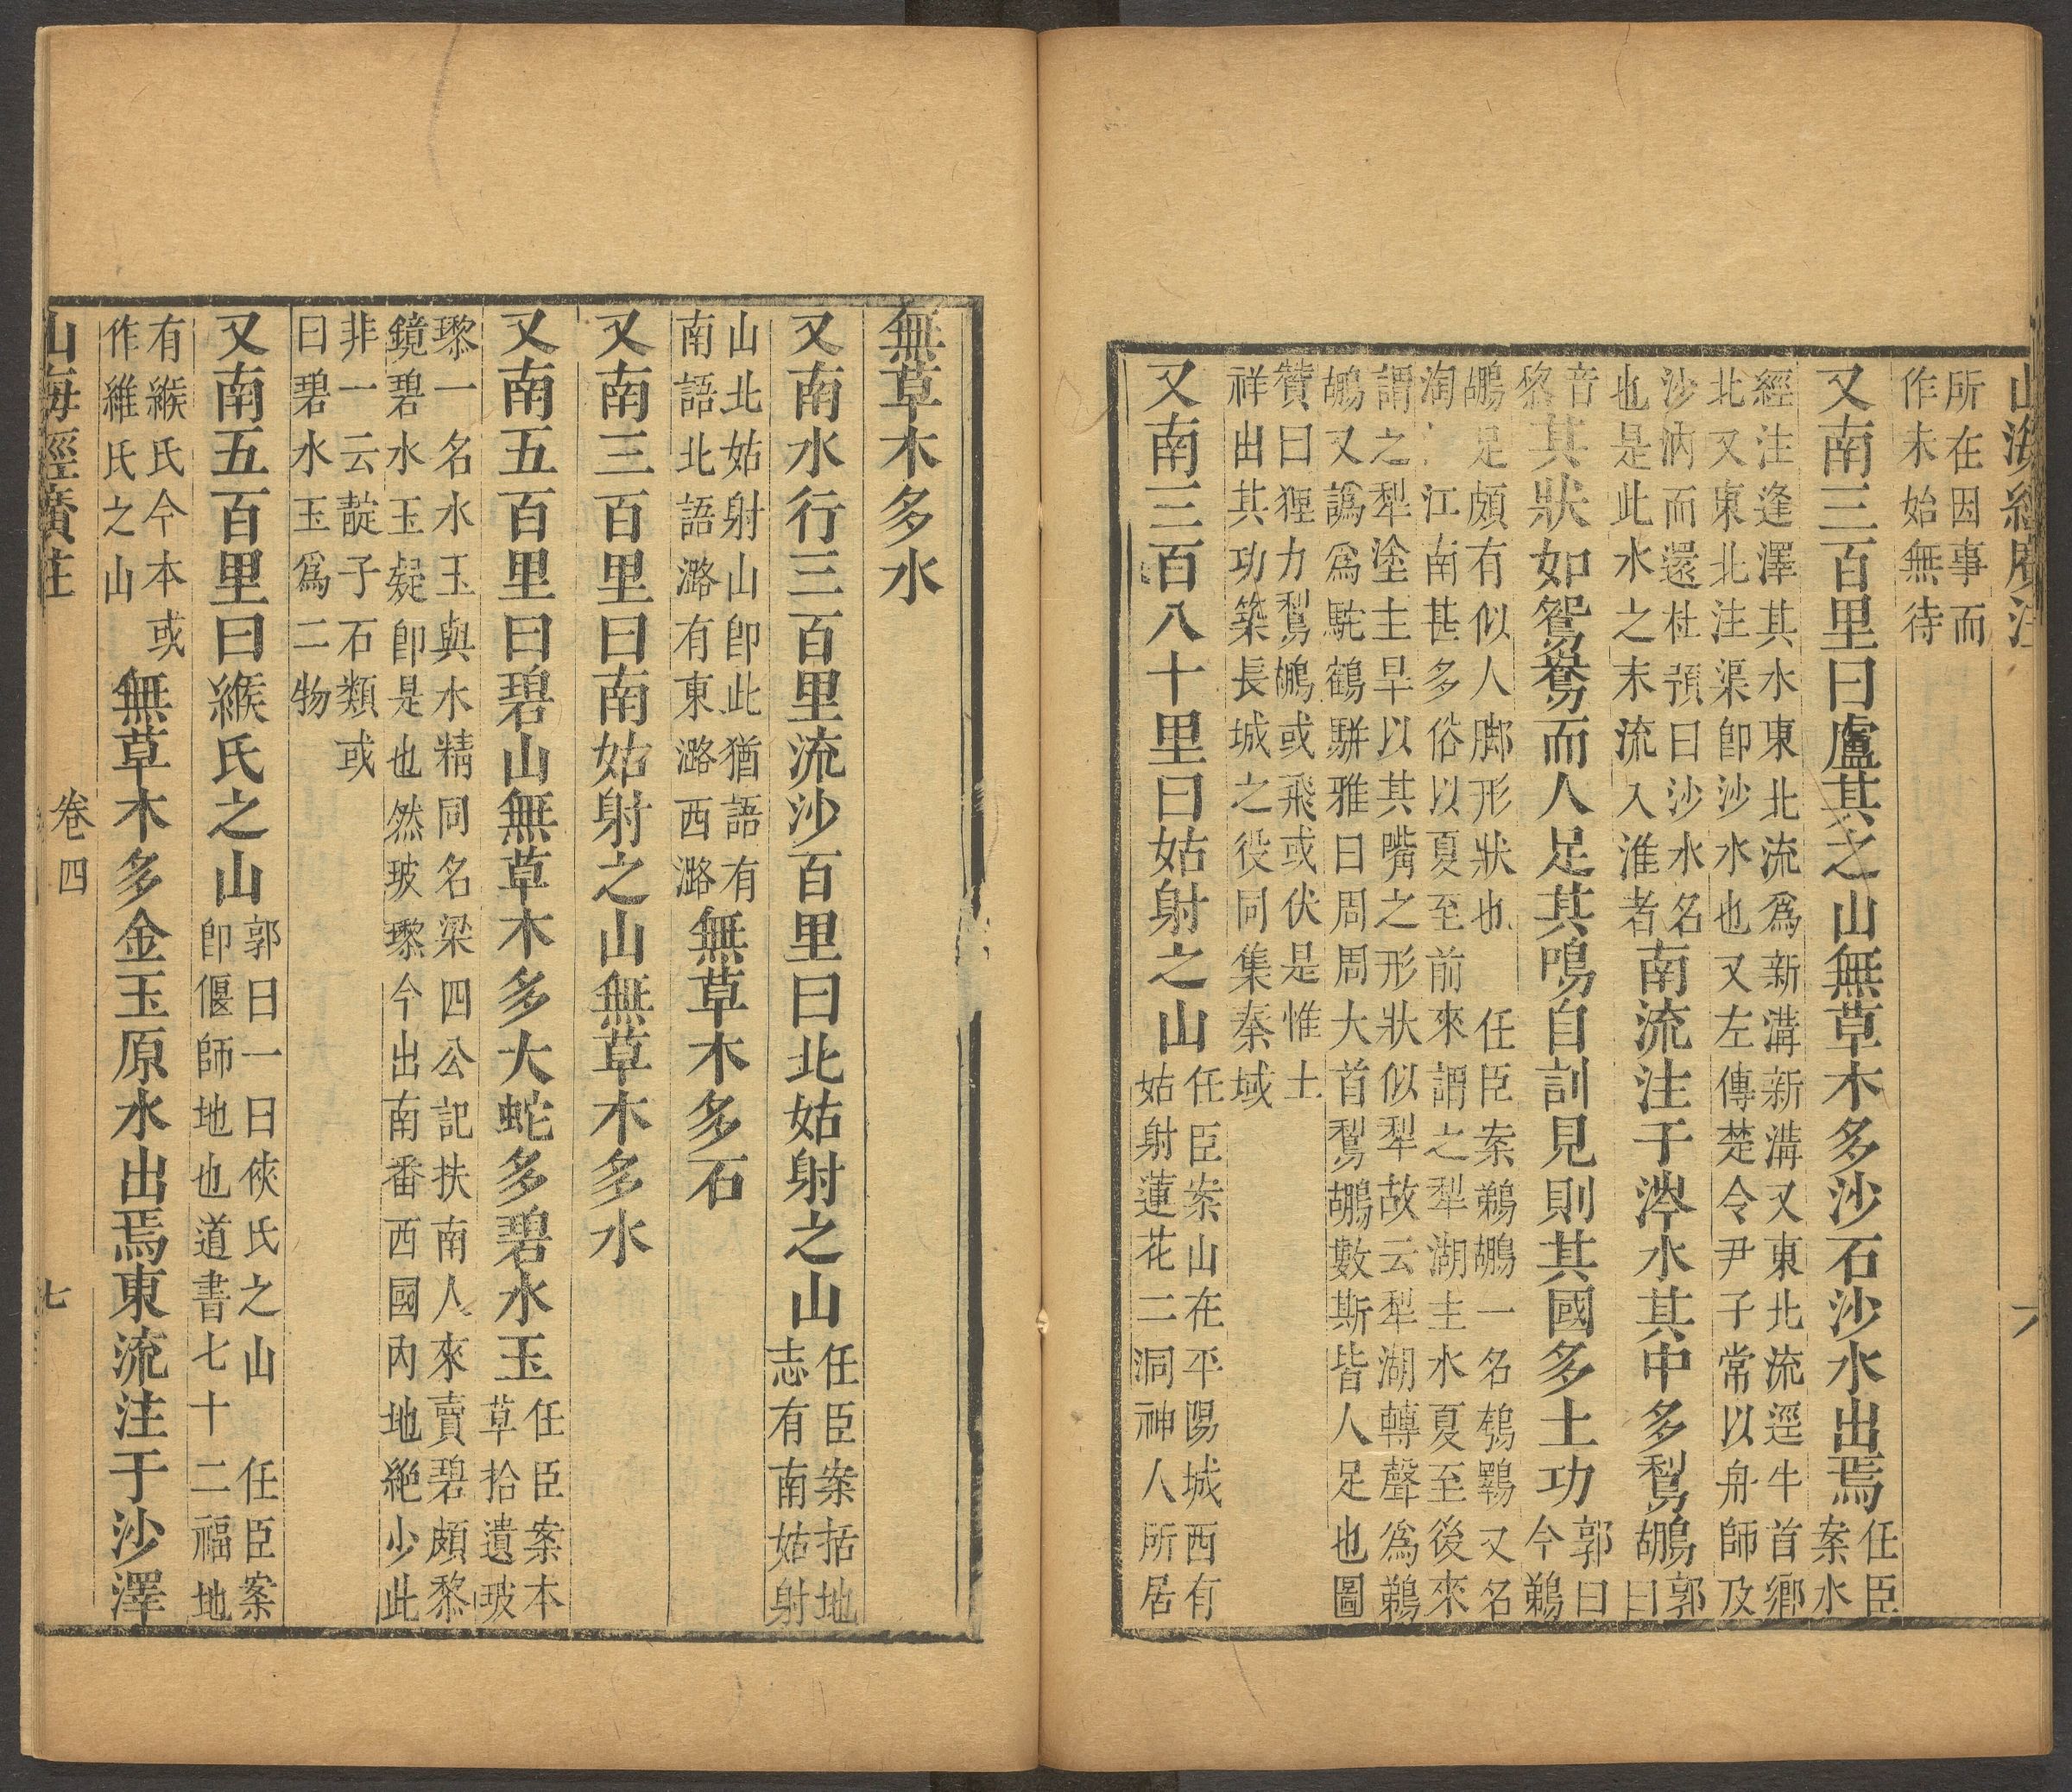 山海經廣注
六
所在因事而
作未始無待
又南三百里曰盧其之山無草木多沙石沙水出焉任臣
案水
經注逢澤其水東北流爲新溝新溝又東北流逕牛首鄉
北又東北注渠卽沙水也又左傳楚令尹子常以舟師及
沙汭而還杜預曰沙水名
也是此水之末流入淮者南流注于涔水其中多鴽鶘郭
曰
音
黎其狀如鴛鴦而人足其鳴自訓見則其國多土功郭曰
今鵜
鶘足頗有似人脚形狀也　任臣案鵜鶘一名鴮鸅又名
淘江南甚多俗以夏至前來謂之犁湖主水夏至後來
謂之犁塗主旱以其嘴之形狀似犁故云犁湖轉聲爲鵜
鶘又譌爲駝鶴騈雅曰周周大首鴽鶘數斯皆人足也圖
贊曰狸力鴽鶘或飛或伏是惟土
祥出其功築長城之役同集秦域
又南三百八十里曰姑射之山任臣案山在平陽城西有
姑射蓮花二洞神人所居
無草木多水
又南水行三百里流沙百里曰北姑射之山任臣案括地
志有南姑射
山北姑射山卽此猶語有
南語北語潞有東潞西潞無草木多石
又南三百里曰南姑射之山無草木多水
又南五百里曰碧山無草木多大蛇多碧水玉任臣案本
草拾遺玻
瓈一名水玉與水精同名梁四公記扶南人來賣碧頗黎
鏡碧水玉疑卽是也然玻瓈今出南番西國內地絕少此
非一云靛子石類或
曰碧水玉爲二物
又南五百里曰緱氏之山郭曰一曰俠氏之山　任臣案
卽偃師地也道書七十二福地
有緱氏今本或
作維氏之山無草木多金玉原水出焉東流注于沙澤
山海經廣注
卷四
七